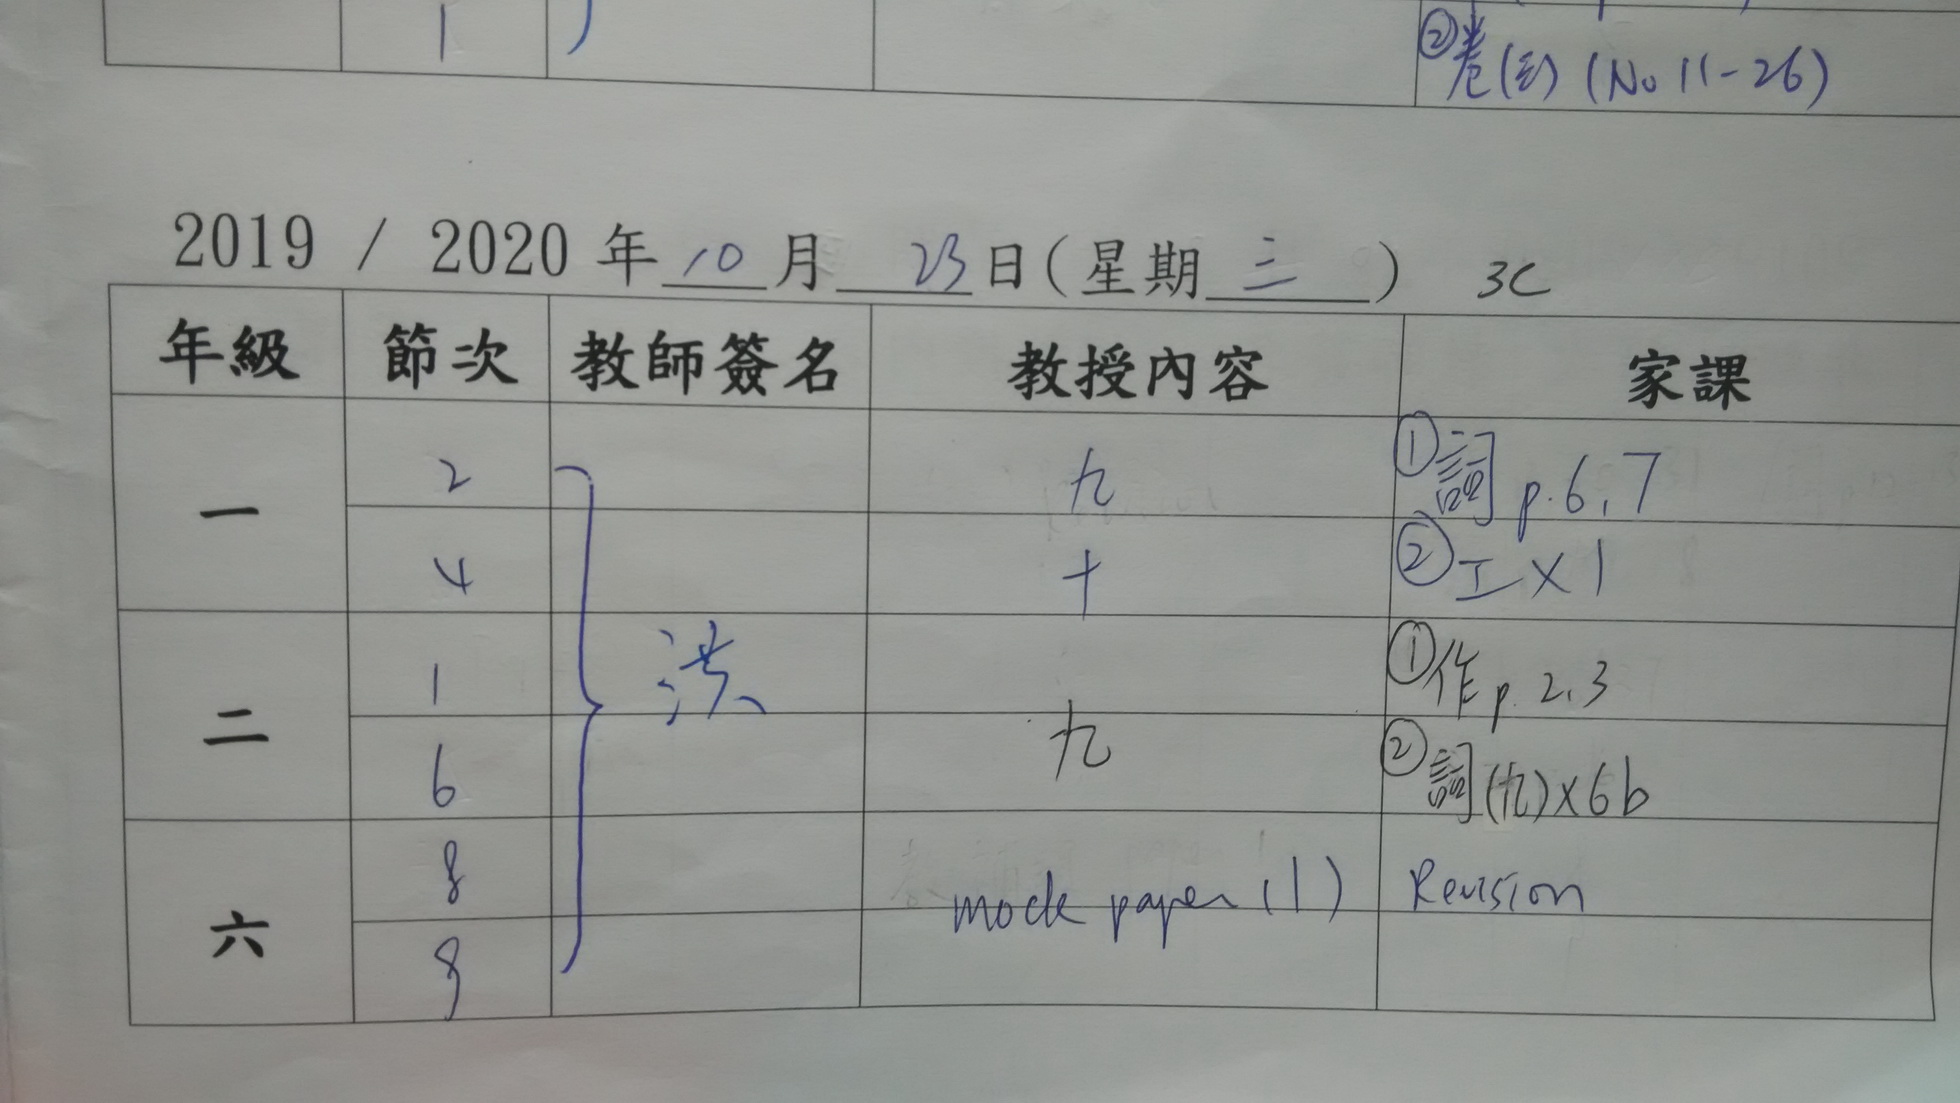 1
②卷(彭) (No 11-26)
2019 / 2020 年 10 月 23 日(星期 三 ) 3C
年級 節次 教師簽名 教授內容 家課
一 2 九 ①詞 p.6,7
4 十 ②工×1
二 1 洪 ①作 p.2,3
6 九 ②詞(九)×6b
六 8 mock paper (1) Revision